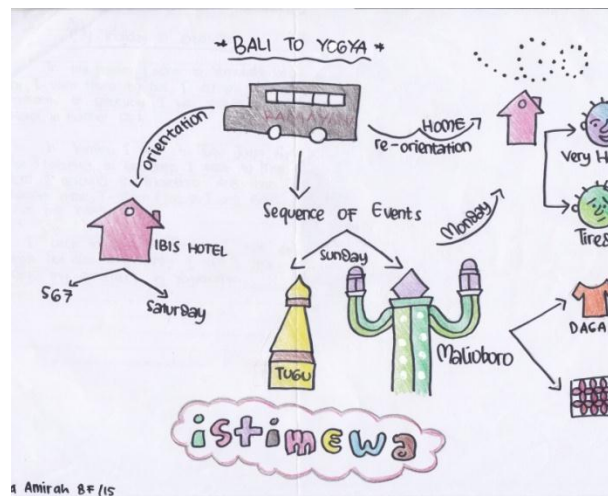 * BALI TO YOGYA *
RAMAYANA
orientation
HOME
re-orientation
very H
Tired
IBIS HOTEL
567
Saturday
Sequence OF Events
sunday
Monday
TUGU
Malioboro
DAGA
istimewa
a Amirah 8F/15